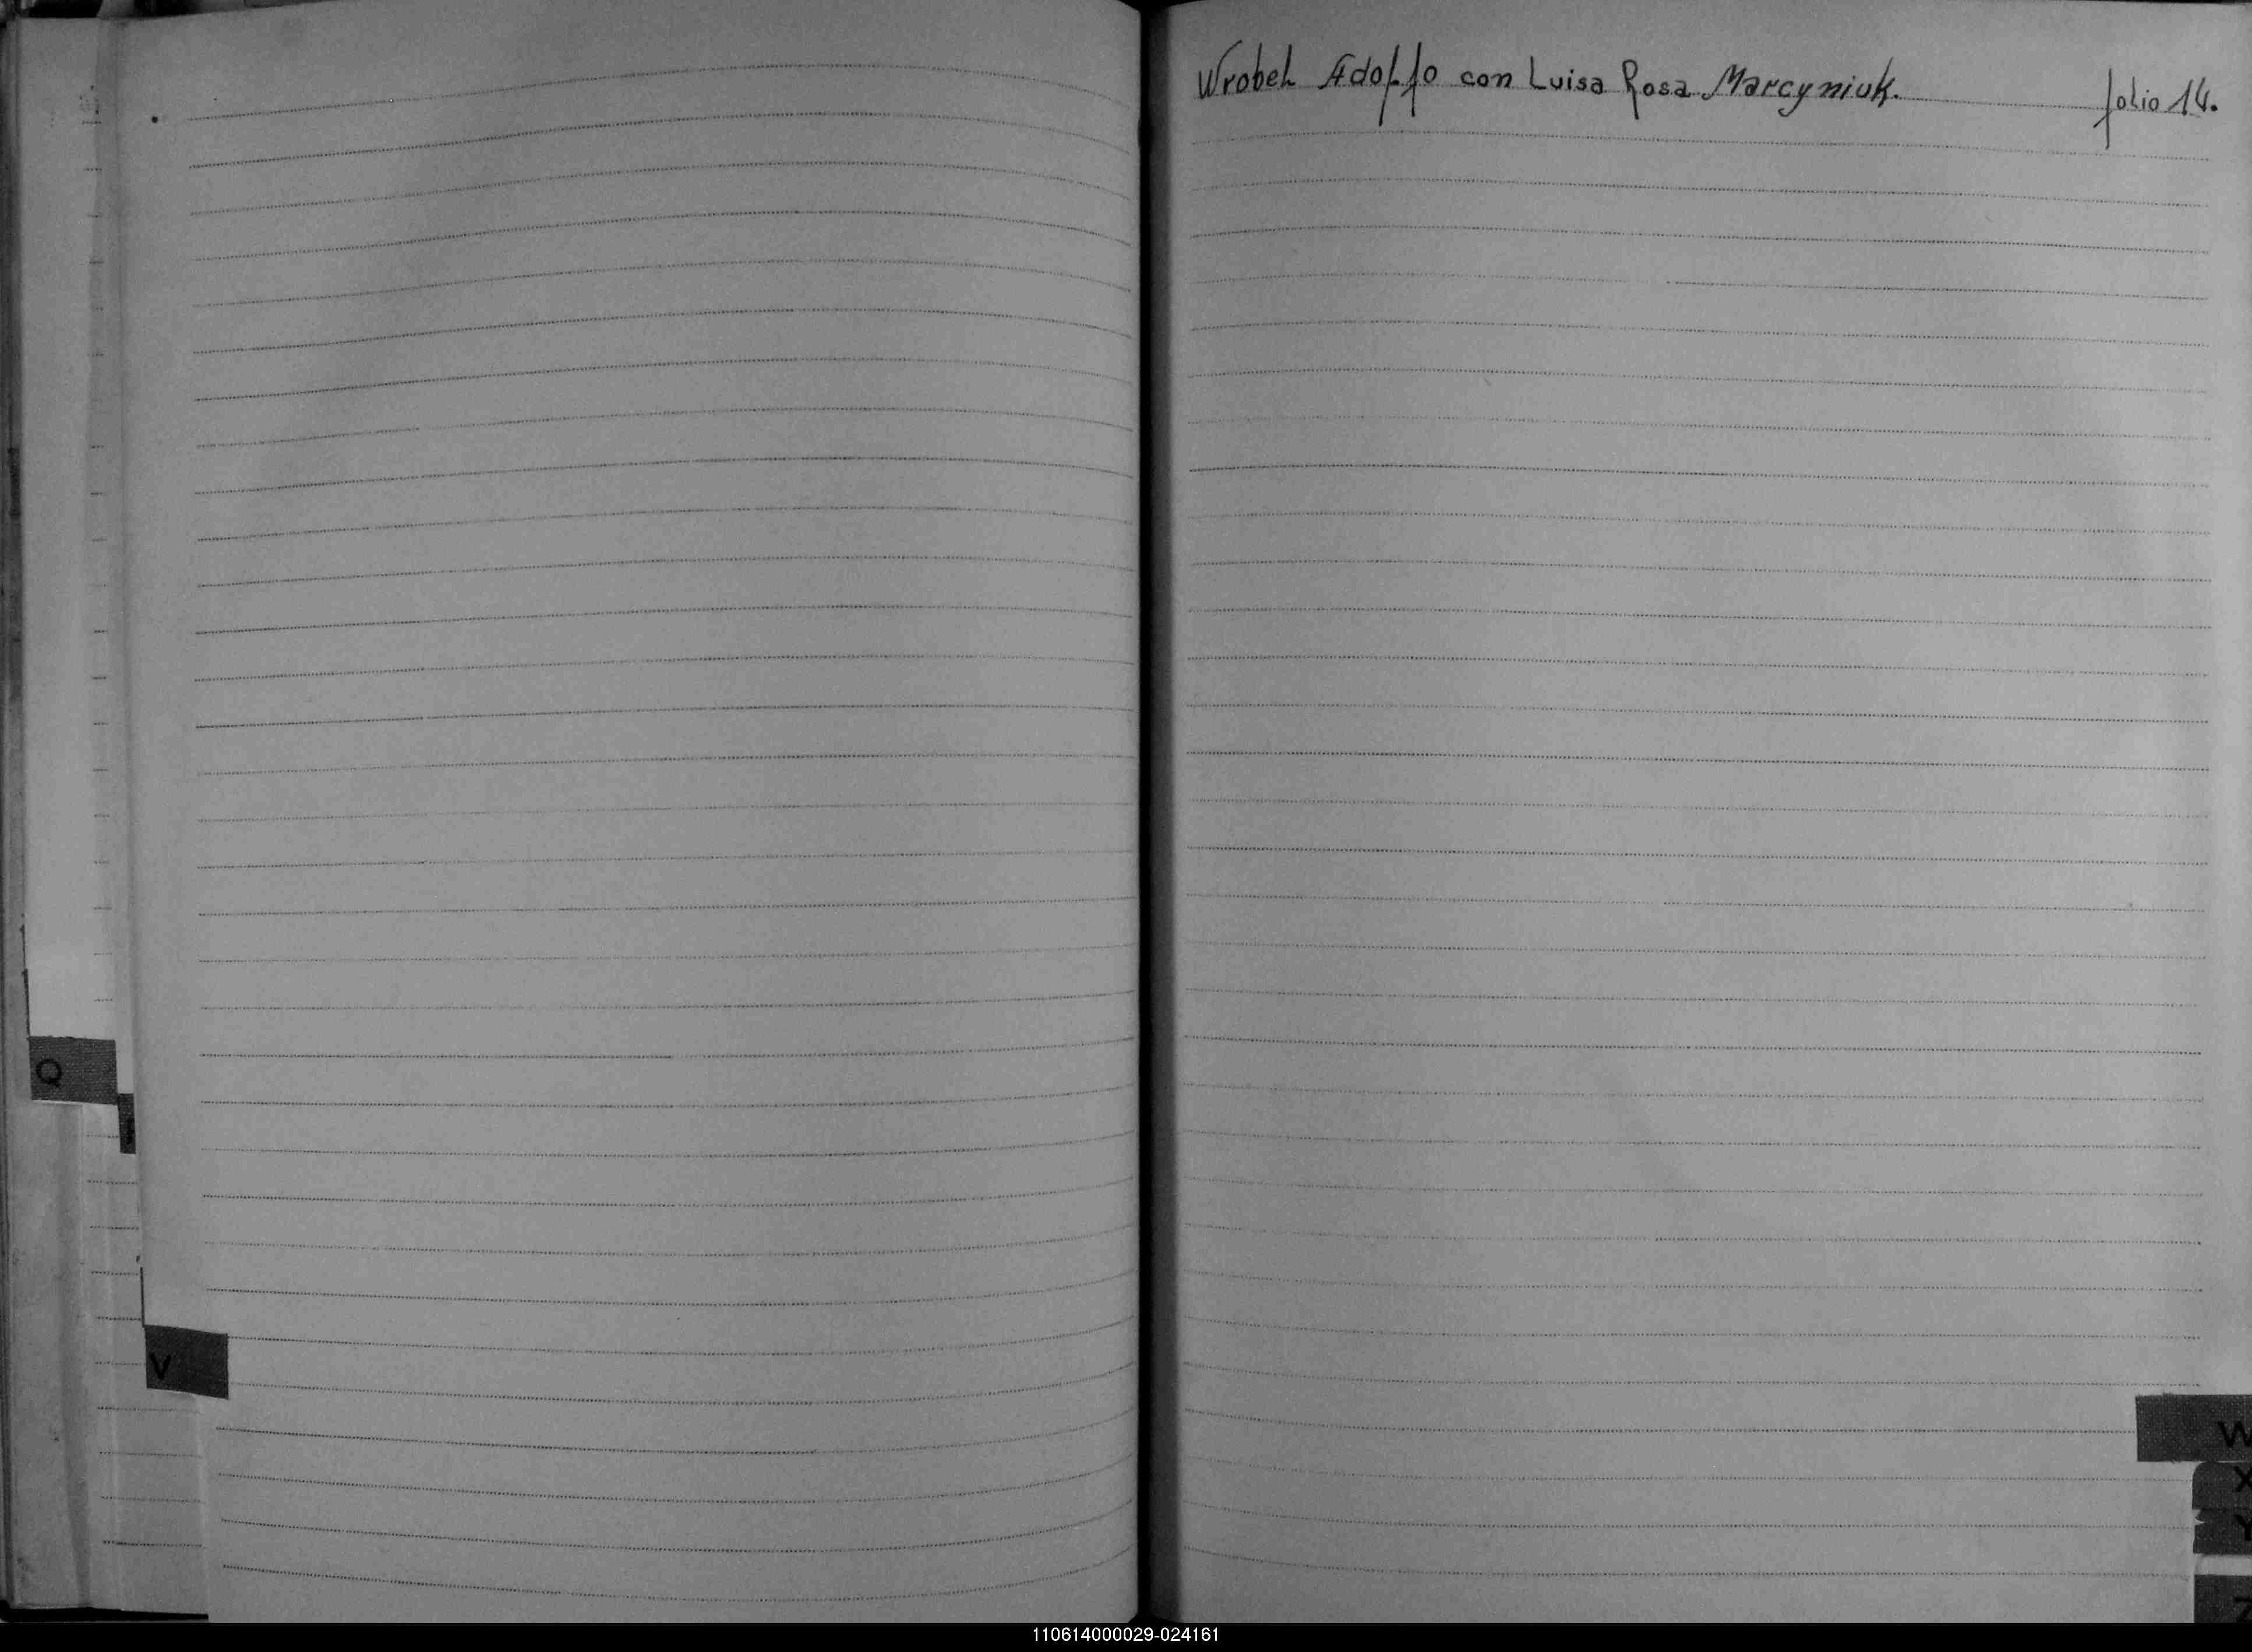 Wrobel Adolfo con Luisa Rosa Marcyniuk. folio 14.
Q
V
W
X
Y
Z
110614000029-024161